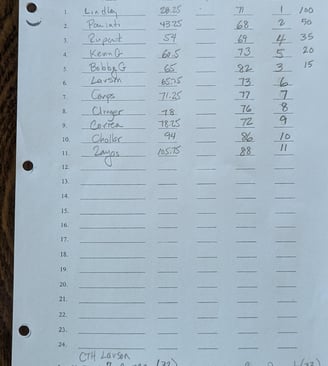 1. Lindley 28.25 71 1 100
2. 43.25 68 2 50
3. Rupert 54 69 4 35
4. Kevin G 60.5 73 5 20
5. Bobby G 65 82 3 15
6. Larson 65.75 73 6
7. Camps 71.25 77 7
8. 78 76 8
9. Correa 78.25 72 9
10. 94 86 10
11. Zayas 105.75 88 11
12.
13.
14.
15.
16.
17.
18.
19.
20.
21.
22.
23.
24.
CTH Larson